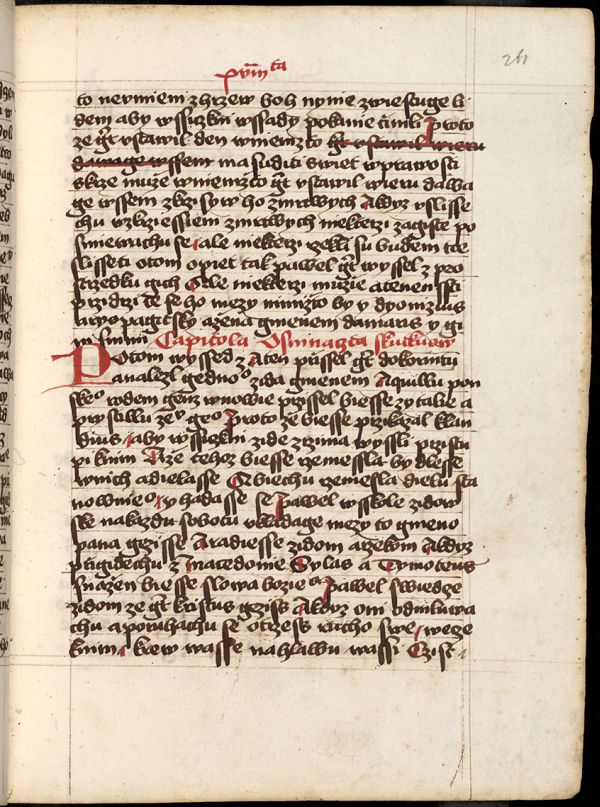 261
to newniem zhrzew boh nynie zwiestuge li
dem aby wssiczkni wssady pokanie činili Proto
že gt vstawil den wniemžto gt vstawil wieru
dawage wssem ma suditi swiet wprawosti
skrze muže wniemžto gt vstawil wieru dawa
ge wssem zkrzisyw ho zmrtwych A kdyz vslisse
chu wzkrziessiem zmrtwych niekterzi zagiste po
smiewachu se ale niekterzi rzekli su budem tie
slisseti otom opiet tak pawel gt wyssel z pro
strzedku gich Ale niekterzi muzie atenensti
przidrziece se ho mezy nimižto by y dyonizius
aryopagitsky a žena gmenem damaris y gi
ni snimi Capitola Osmnazta skutkuow
Potom wyssed z Aten prissel gt dokorintu
a nalezl gednoo zida gmenem Aquillu pon
skeo rodem genz wnowie przissel biesse zytalie a
pryscillu zenu geo Proto že biesse przikazal klau
dius aby wssiczkni zide zrzima wyssli pristu
pi knim A že tehoz biesse rzemessla bydlesse
wnich a dielasse A biechu rzemesla dielu sta
nowmieo y hadasse se Pawel wsskole zidow
ske nakazdu sobotu vkladage mezy to gmeno
pana gezisse A radiesse zidom a rzekom A kdyz
prigidechu z macedonie Sylas a Tymoteus
snažen biesse slowa bozieo Pawel swiedcze
zidom ze gt kristus geziss A kdyz oni odmluwa
chu a poruhachu se otrzess rucho swe wece
knim krew wasse nahlawu wassi Czist